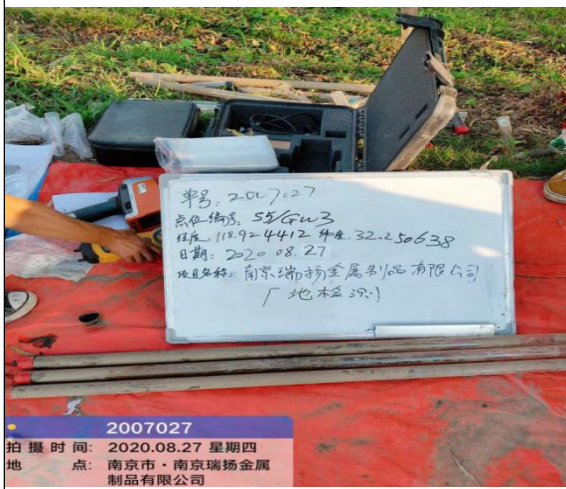 单号: 2007027
点位编号: S5/GW3
经度: 118.924412 纬度: 32.250638
日期: 2020.08.27
项目名称: 南京瑞扬金属制品有限公司
厂地检测
2007027
拍摄时间: 2020.08.27 星期四
地 点: 南京市·南京瑞扬金属
制品有限公司